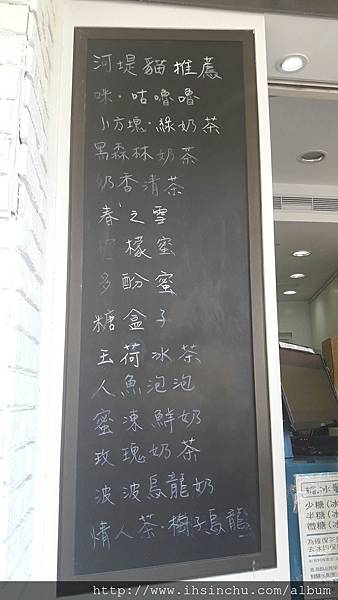 河堤貓推薦
咪·咕嚕嚕
小方塊·綠奶茶
黑森林奶茶
奶香清茶
春之雪
檬蜜
多酚蜜
糖盒子
玉荷冰茶
人魚泡泡
蜜凍鮮奶
玫瑰奶茶
波波烏龍奶
情人茶·梅子烏龍
少糖(冰
半糖(冰
微糖(冰
http://www.ihsinchu.com/album